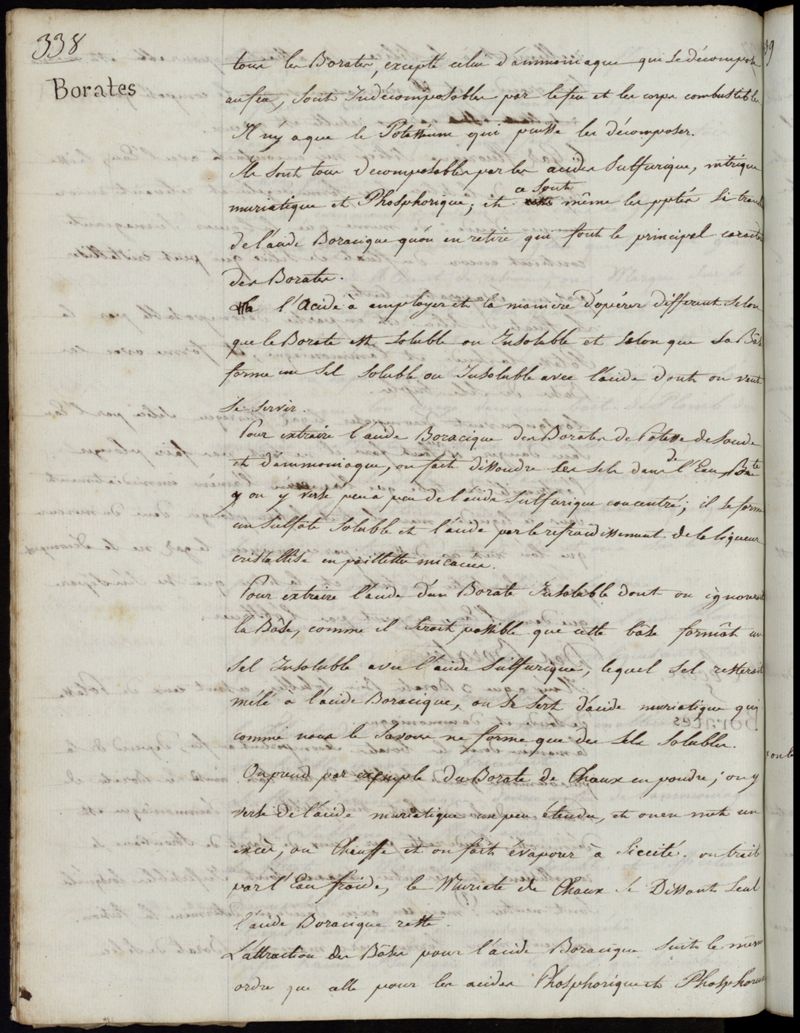 338
Borates
tous les Borates, excepté celui d'ammoniaque qui se décompose
au feu, sont Indécomposables par le feu et les corps combustibles
Il n'y a que le Potassium qui puisse les décomposer.
Ils sont tous décomposables par les acides Sulfurique, nitrique
muriatique et Phosphorique; et ce sont même les pptés
de l'acide Boracique qu'on en retire qui font le principal caractè
des Borates.
l'Acide à employer et la manière d'opérer diffèrent selon
que le Borate est Soluble ou Insoluble et selon que sa Bâse
forme un Sel soluble ou Insoluble avec l'acide dont on veut
se servir.
Pour extraire l'acide Boracique des Borates de Potasse de Soude
et d'ammoniaque, on fait dissoudre ces sels dans de l'Eau
on y verse peu à peu de l'acide Sulfurique concentré; il se forme
un Sulfate soluble et l'acide par le refroidissement de la liqueur
cristallise en paillettes micacées.
Pour extraire l'acide d'un Borate Insoluble dont on ignore
la Bâse, comme il seroit possible que cette bâse formât un
sel Insoluble avec l'acide Sulfurique, lequel sel resteroit
mêlé à l'acide Boracique, on se sert d'acide muriatique qui
comme nous le savons ne forme que des sels solubles.
On prend par exemple du Borate de Chaux en poudre; on y
verse de l'acide muriatique un peu étendu, et on en met un
excès; on chauffe et on fait évaporer à siccité. on trait
par l'Eau froide, le Muriate de Chaux se Dissout seul
l'acide Boracique reste.
L'attraction des Bâses pour l'acide Boracique suit le même
ordre que celle pour les acides Phosphorique et Phosphoreux